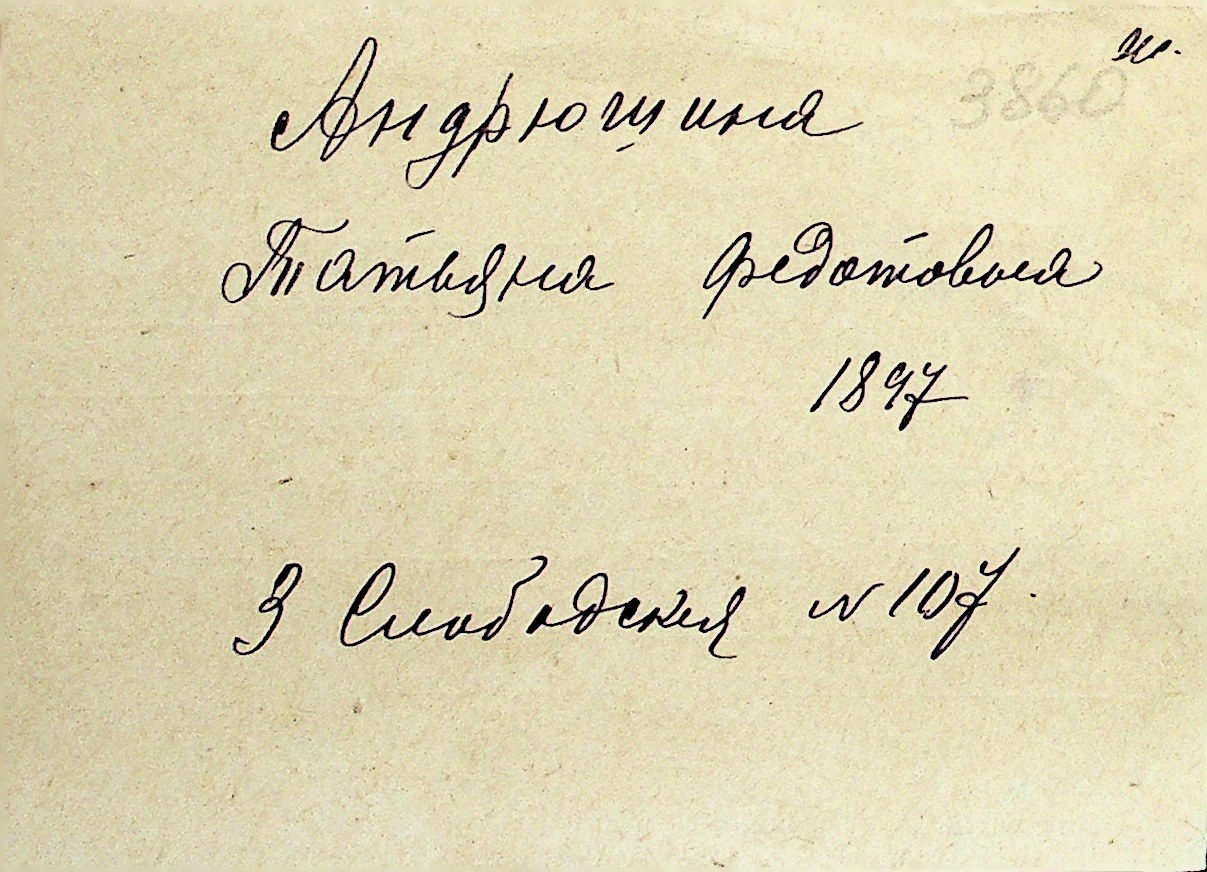 ж.
3860
Андрюшина
Татьяна Федотовна
1897
3 Слободская N 107.